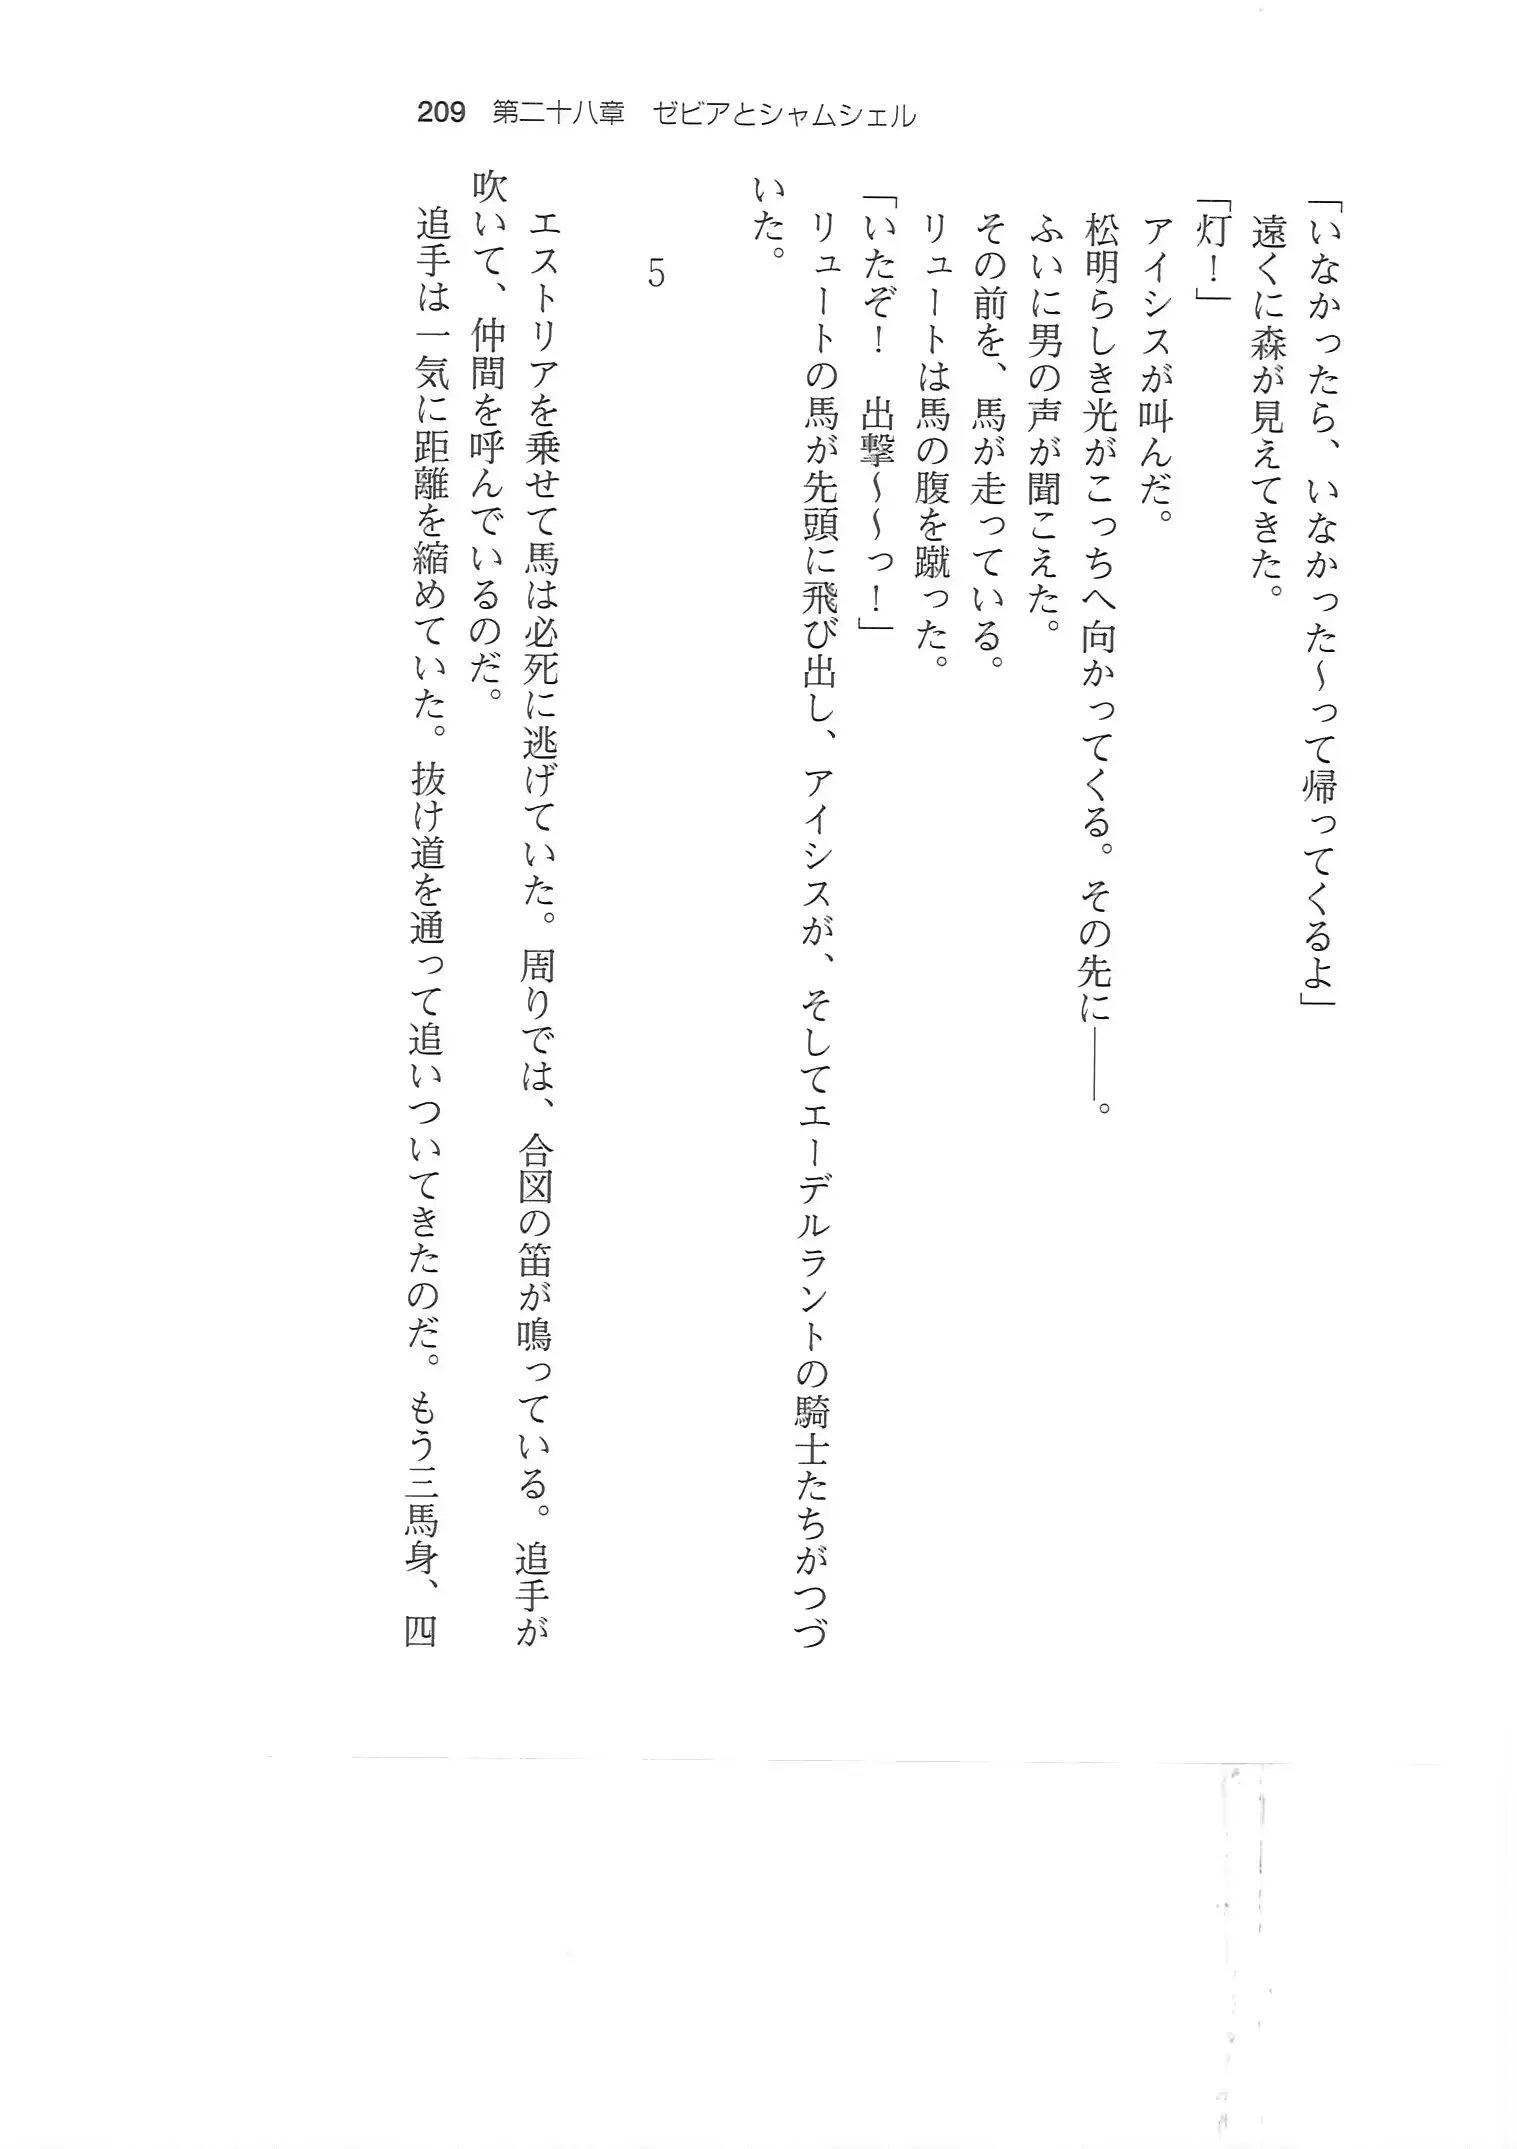 209 第二十八章　ゼビアとシャムシェル
「いなかったら、いなかった～って帰ってくるよ」
遠くに森が見えてきた。
「灯！」
アイシスが叫んだ。
松明らしき光がこっちへ向かってくる。その先に――。
ふいに男の声が聞こえた。
その前を、馬が走っている。
リュートは馬の腹を蹴った。
「いたぞ！　出撃～～っ！」
リュートの馬が先頭に飛び出し、アイシスが、そしてエーデルラントの騎士たちがつづ
いた。
5
エストリアを乗せて馬は必死に逃げていた。周りでは、合図の笛が鳴っている。追手が
吹いて、仲間を呼んでいるのだ。
追手は一気に距離を縮めていた。抜け道を通って追いついてきたのだ。もう三馬身、四